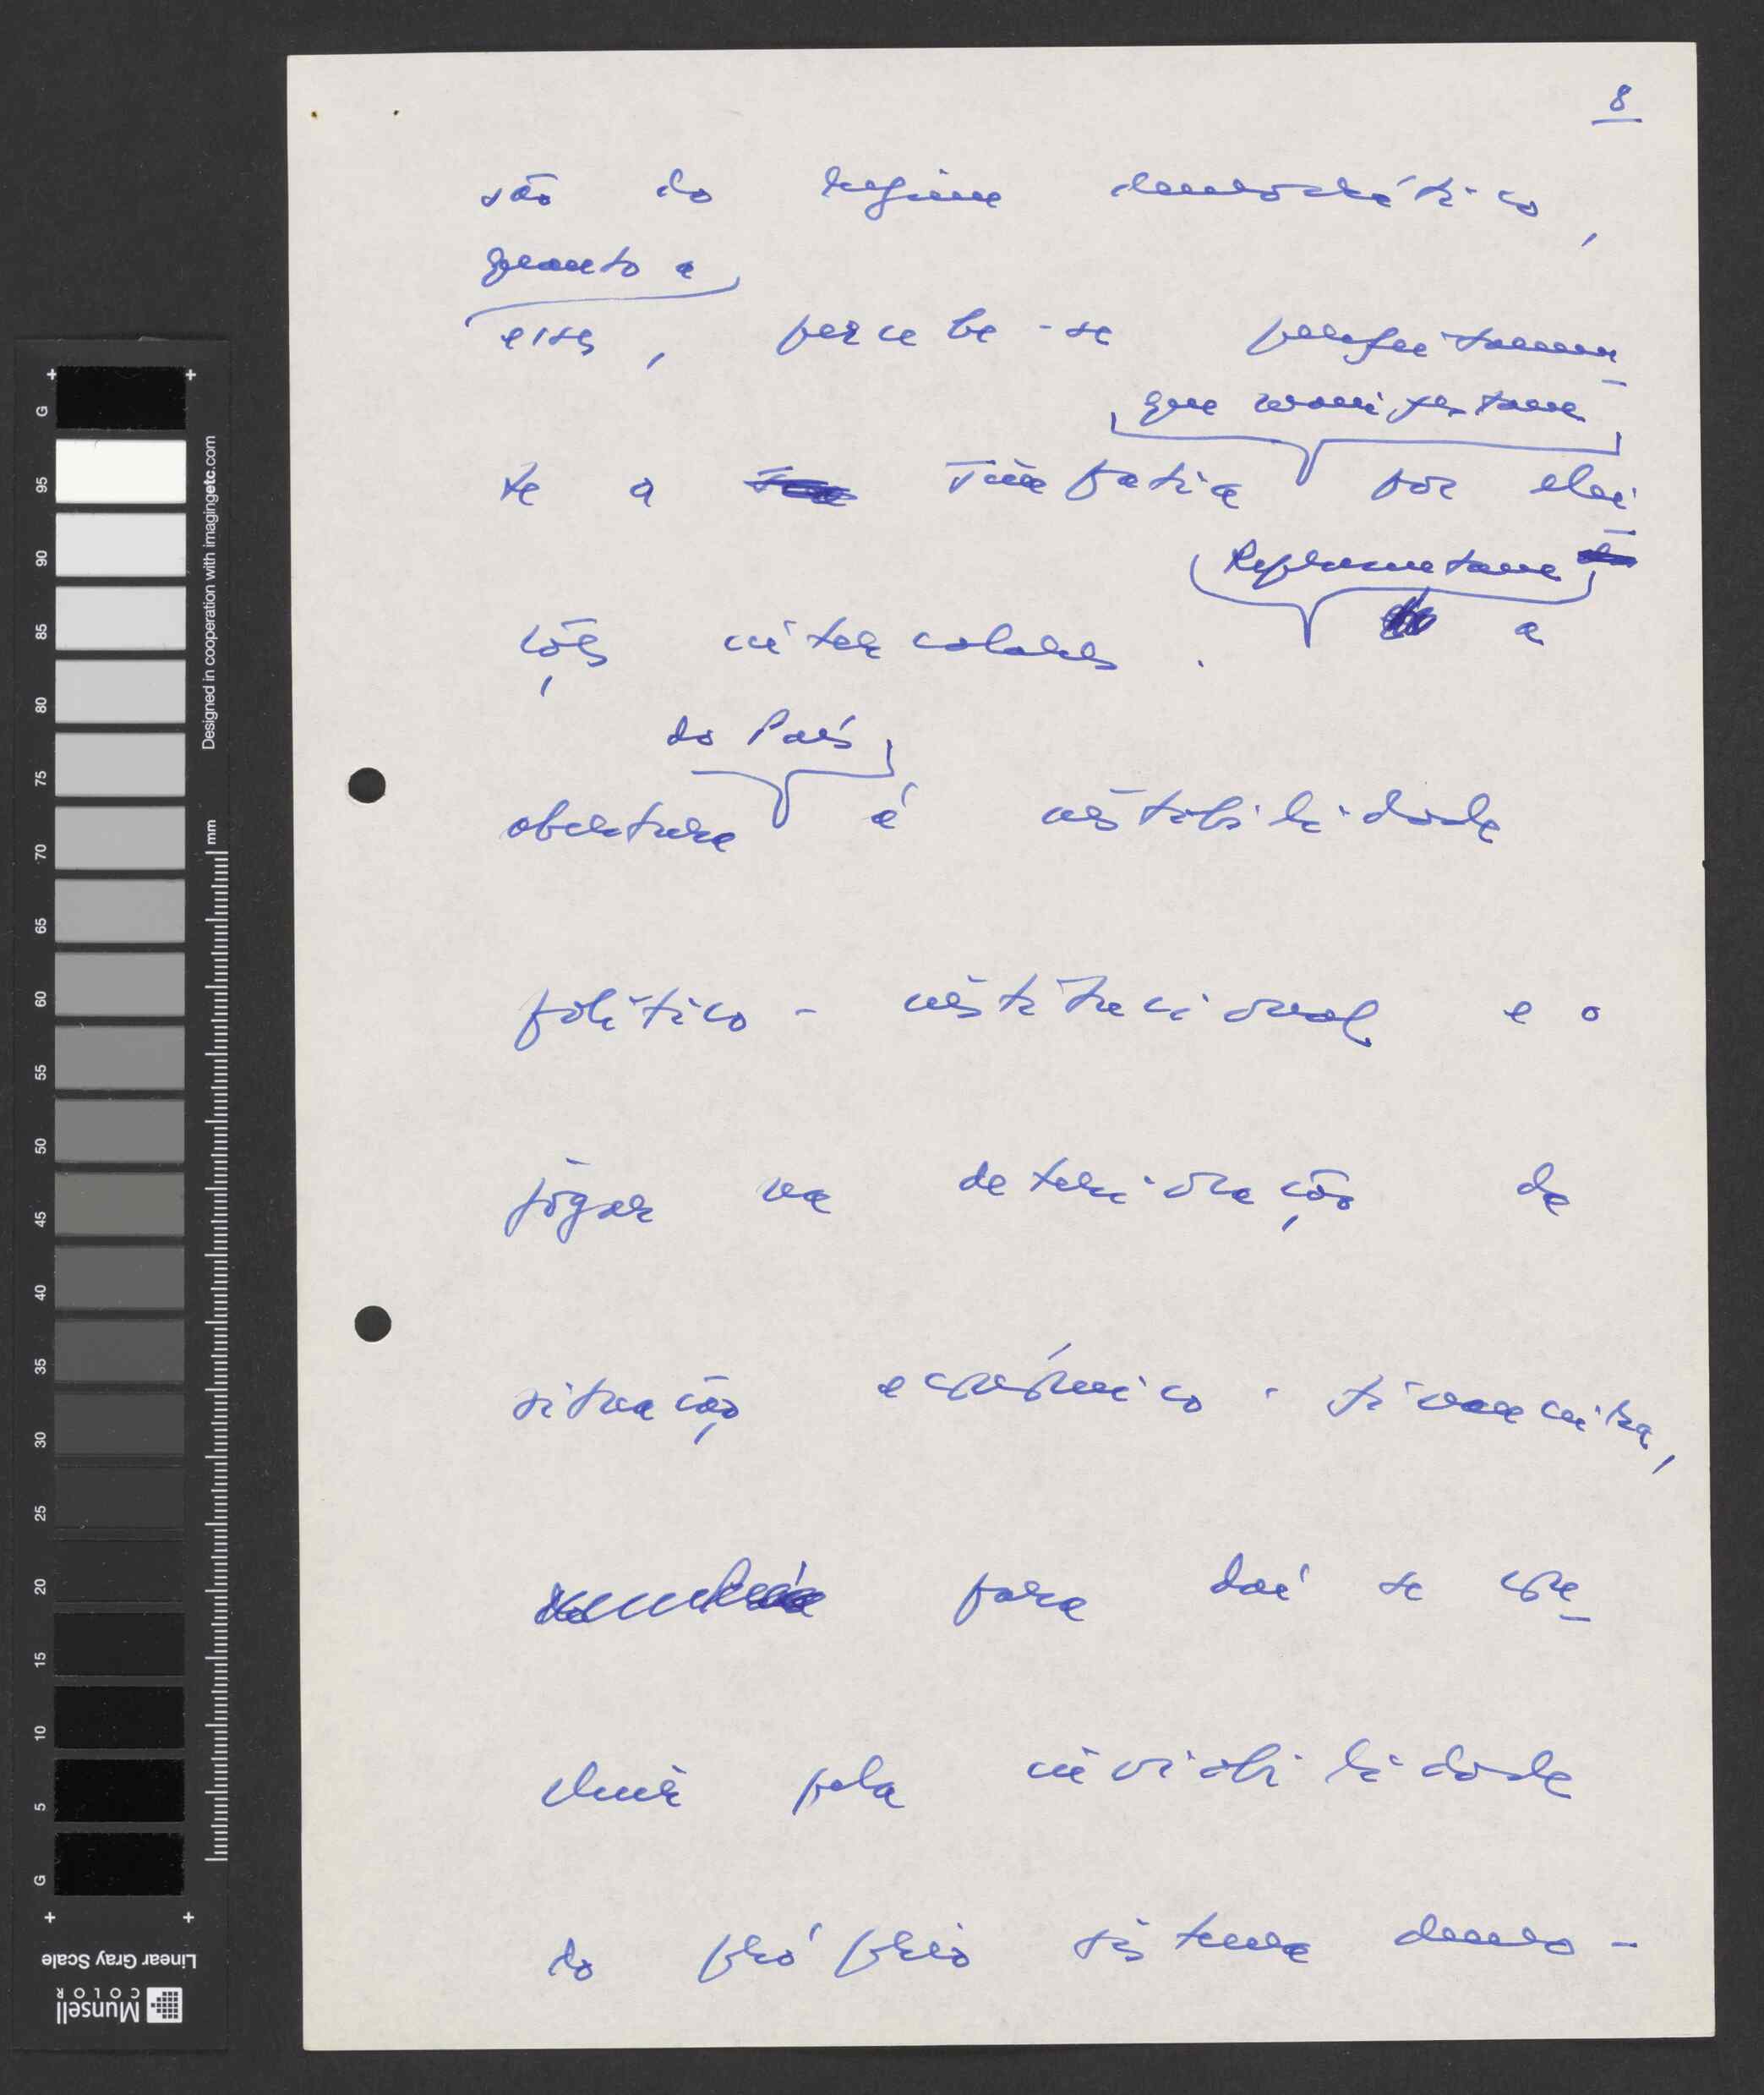 8
são do regime democrático,
quanto a
esses, percebe-se perfeitamen
que manifestam
te a simpatia por elei
Representam
ções intercolares. a
do País
abertura à instabilidade
político-institucional e o
jogar na deterioração da
situação econômico-financeira,
para daí se con
cluir pela inviabilidade
do próprio sistema demo-
G
95
90
85
80
75
70
65
60
55
50
45
40
35
30
25
20
15
10
5
G
Designed in cooperation with imagingetc.com
mm
Linear Gray Scale
Munsell
COLOR